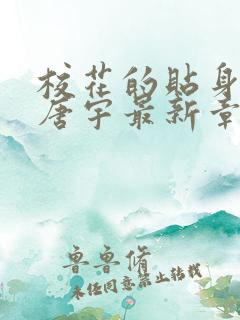 校花的贴身
唐宇最新章
鲁鲁脩
未经同意禁止转载